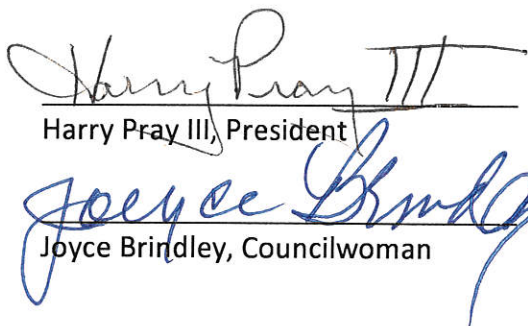 Harry Pray III
Harry Pray III, President
Joeyce Brindley
Joyce Brindley, Councilwoman